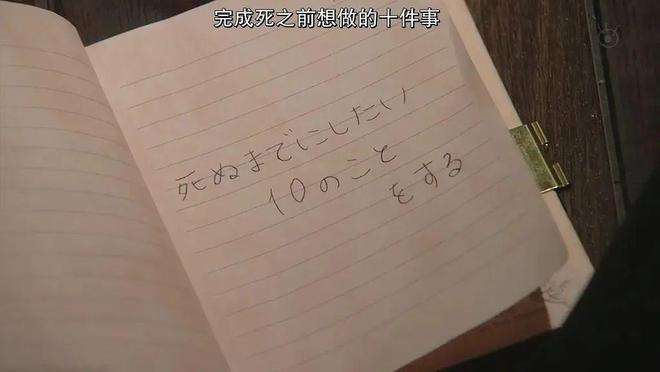 完成死之前想做的十件事
死ぬまでにしたい
10のこと
をする